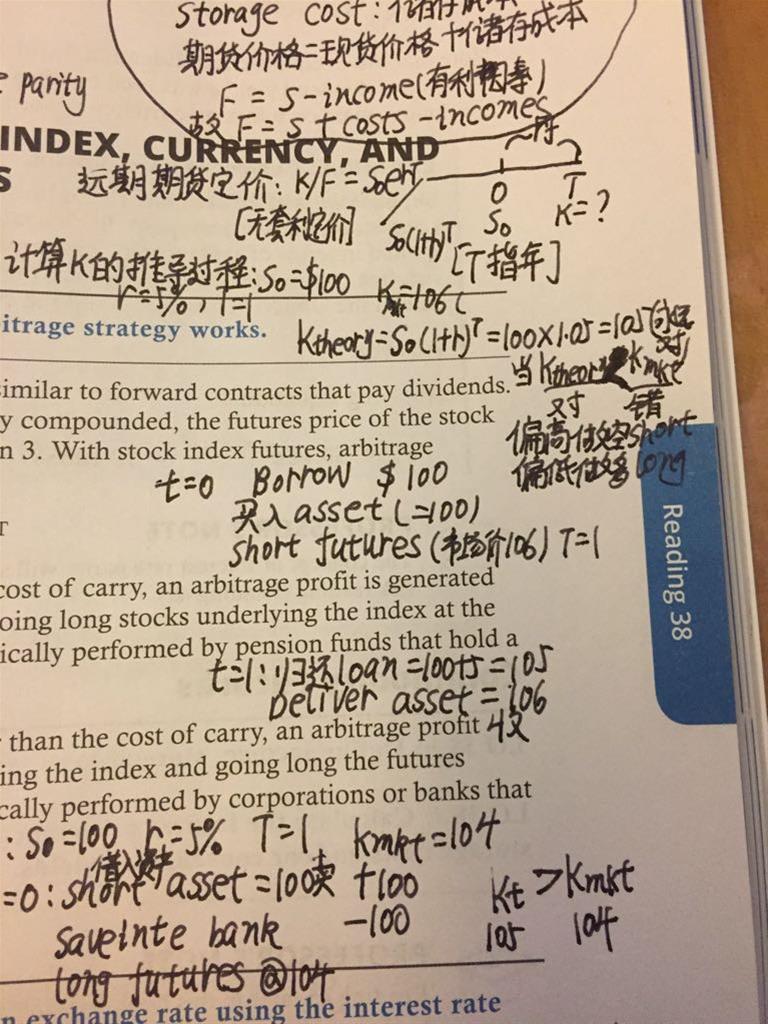 storage cost: 储存成本
期货价格=现货价格+储存成本
F = S-income(有利因素)
e parity
故 F = S + costs - incomes
INDEX, CURRENCY, AND
S
远期期货定价: K/F = S₀e^rT
0 T
[无套利定价]
S₀(1+r)^T
S₀ K=?
[T指年]
计算K的推导过程: S₀=$100
r=5%, T=1 Kmkt=106
bitrage strategy works.
Ktheory=S₀(1+r)^T=100×1.05=105
similar to forward contracts that pay dividends.
当Ktheory<Kmkt
y compounded, the futures price of the stock
对 错
n 3. With stock index futures, arbitrage
偏高做空short
偏低做多long
t=0 Borrow $100
买入asset (=100)
T
short futures (市场价106) T=1
Reading 38
cost of carry, an arbitrage profit is generated
oing long stocks underlying the index at the
ically performed by pension funds that hold a
t=1: 归还loan=100+5=105
Deliver asset = 106
than the cost of carry, an arbitrage profit 收
ing the index and going long the futures
cally performed by corporations or banks that
: S₀=100 r=5% T=1 kmkt=104
借入资产
=0: short asset=100卖 +100
Kt > Kmkt
save into bank -100
105 104
long futures @104
n exchange rate using the interest rate